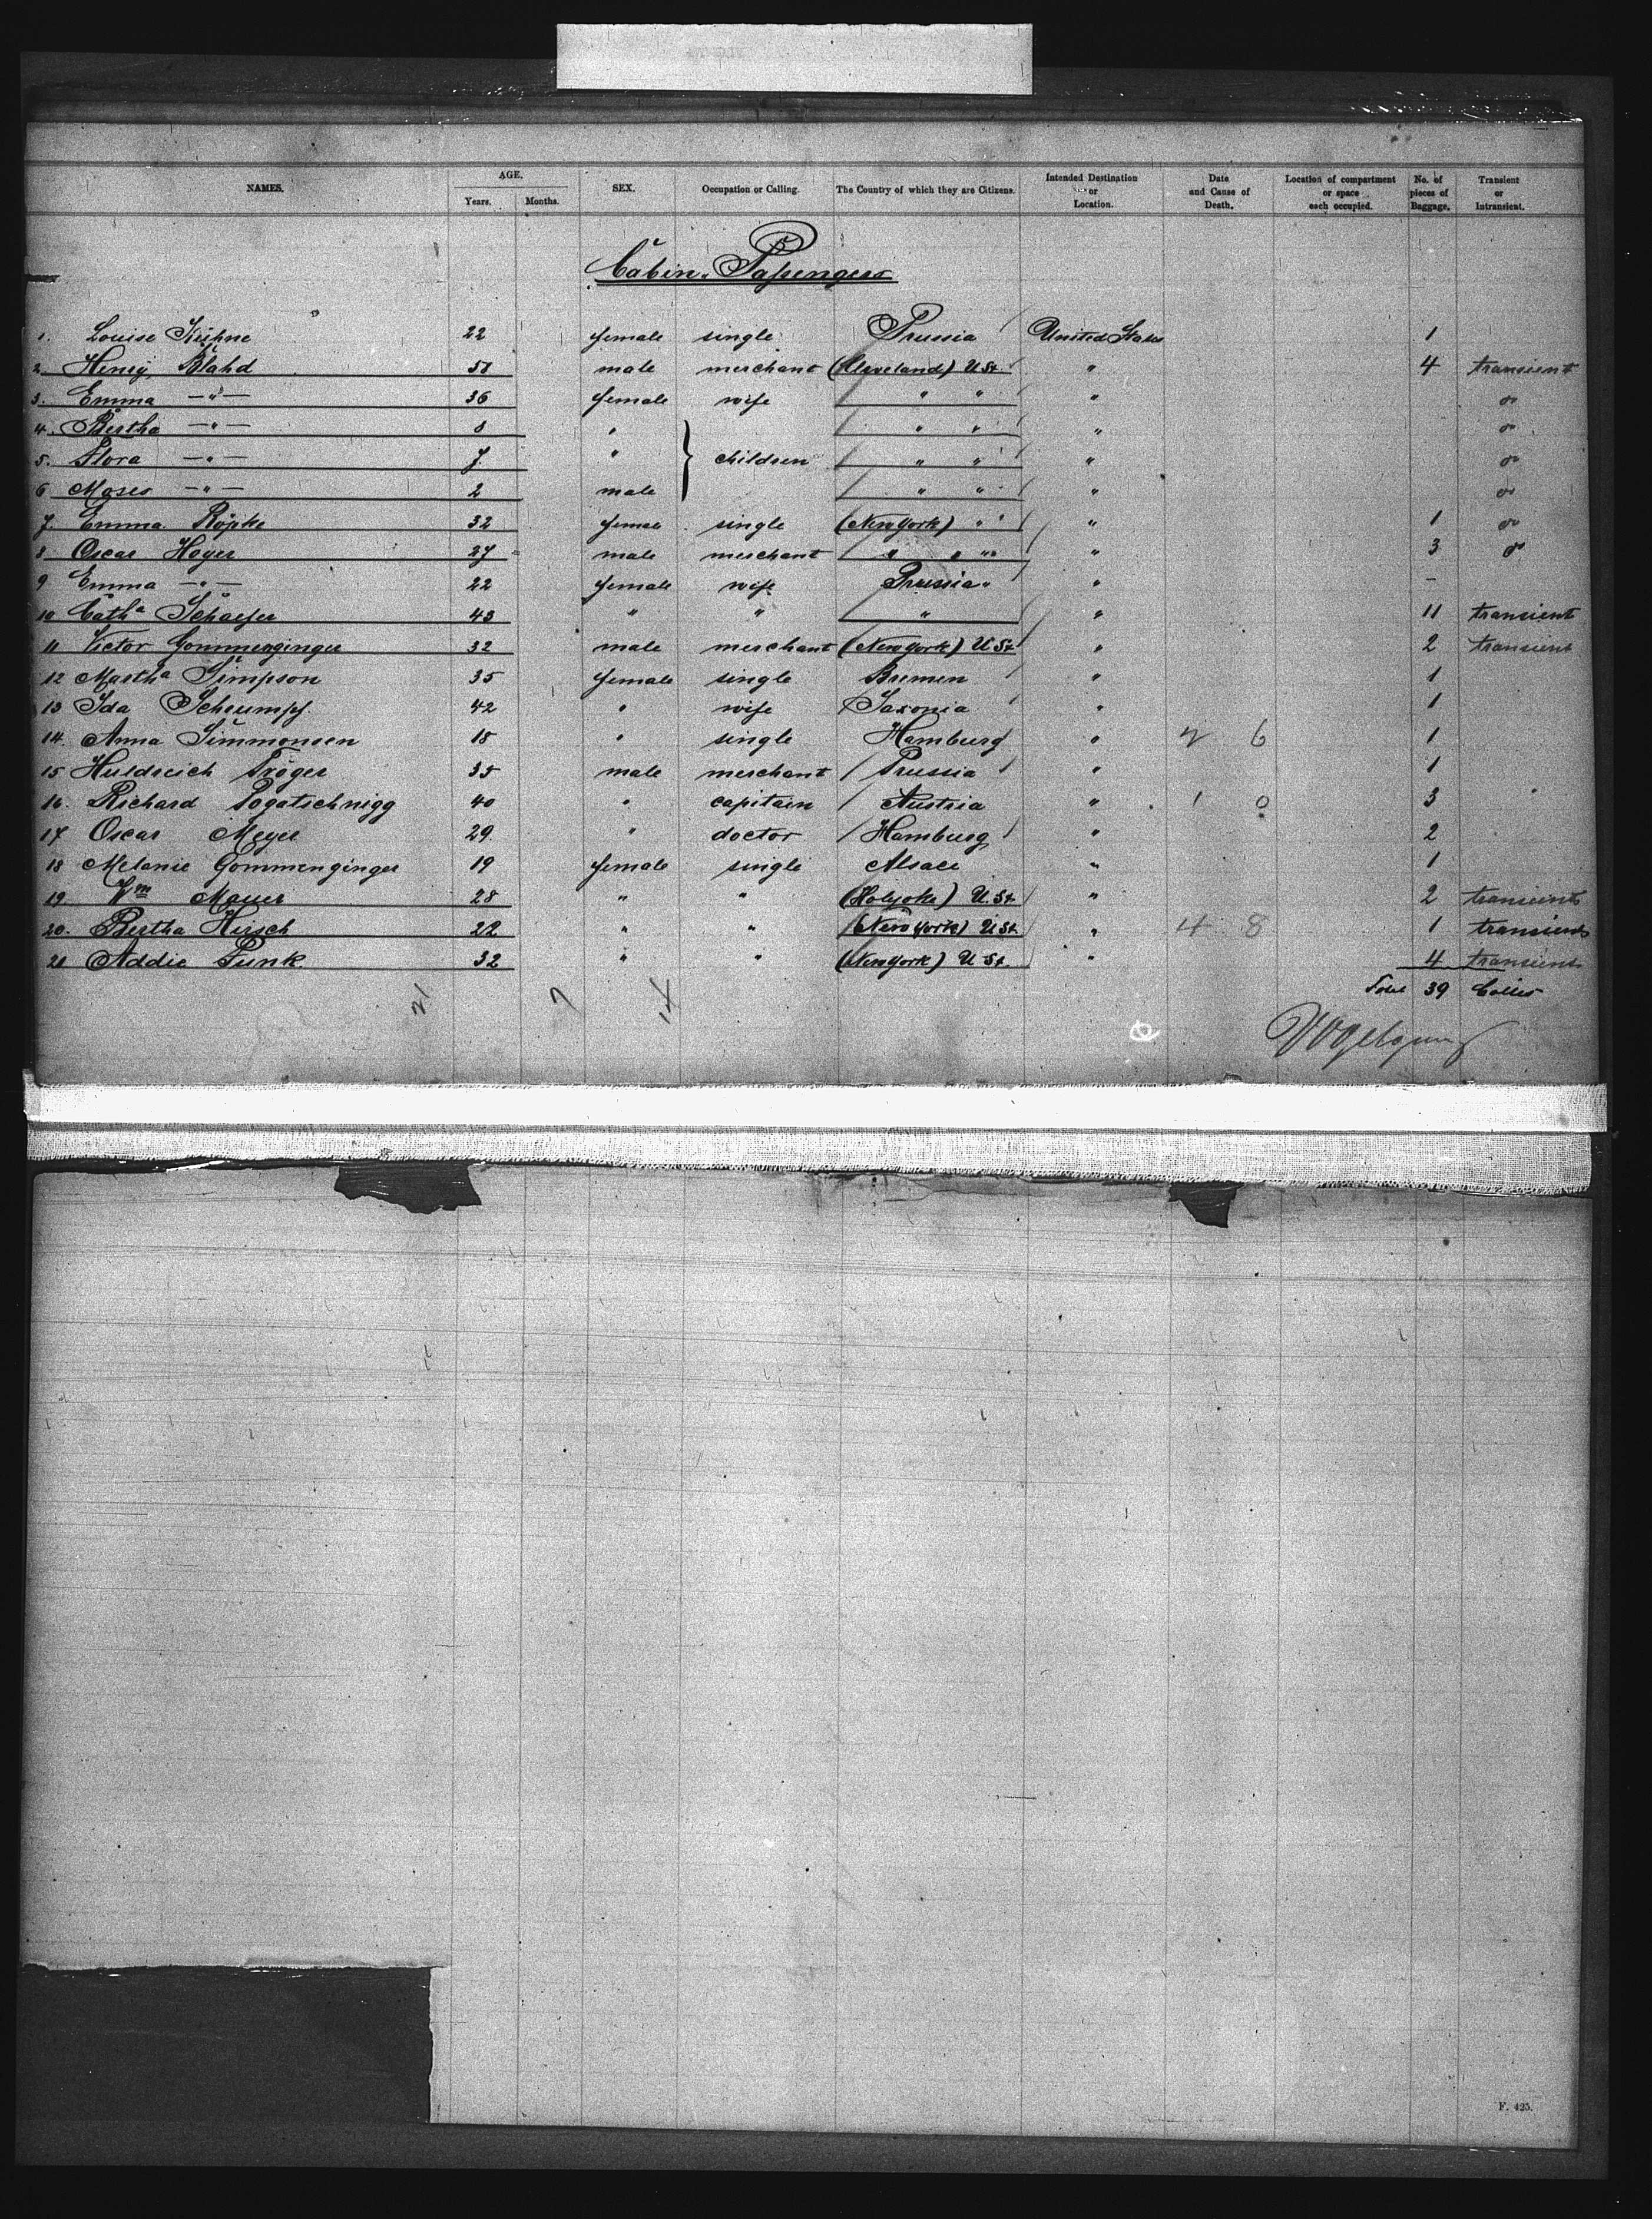 NAMES. AGE. Years. Months. SEX. Occupation or Calling. The Country of which they are Citizens. Intended Destination or Location. Date and Cause of Death. Location of compartment or space each occupied. No. of pieces of Baggage. Transient or Intransient.
Cabin-Passengers
1. Louise Kühne 22 female single Prussia United States 1
2. Henry Blahd male merchant (Cleveland) U St. " 4 transient
3. Emma —"— 36 female wife " " " do
4. Bertha —"— 8 " " " " do
5. Flora —"— 7. " children " " " do
6 Moses —"— 2 male " " " do
7. Emma Röpke 32 female single (New York) " " " 1 do
8 Oscar Hoyer 27 male merchant " " " " 3 do
9 Emma —"— 22 female wife Prussia " " -
10 Cath^a Schaefer 43 " " " " 11 transient
11 Victor Gommenginger 32 male merchant (New York) U St. " 2 transient
12 Martha Simpson 35 female single Bremen " 1
13 Ida Schrumpf 42 " wife Saxonia " 1
14. Anna Simmonsen 18 " single Hamburg " 2 6 1
15 Huldreich Tröger 35 male merchant Prussia " 1
16. Richard Pogatschnigg 40 " capitain Austria " 1 0 3
17 Oscar Meyer 29. " doctor Hamburg " 2
18 Melanie Gommenginger 19 female single Alsace " 1
19 Wm Mauer 28 " " (Holyoke) U. St. " 2 transient
20. Bertha Hirsch 22 " " (New York) U St. " 4 8 1 transient
21 Addie Funk. 32 " " (New York) U St. " 4 transient
Total 39 Collis
21 7 14
F. 425.